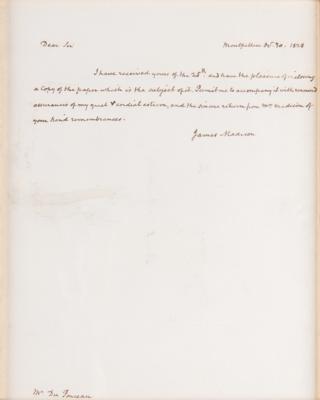 Dear Sir Montpellier Oct. 20. 1824
I have received yours of the 25th. and have the pleasure of inclosing
a copy of the paper which is the subject of it. Permit me to accompany it with renewed
assurances of my great & cordial esteem, and the sincere return from Mrs Madison of
your kind remembrances.
James Madison
Mr. Du Ponceau